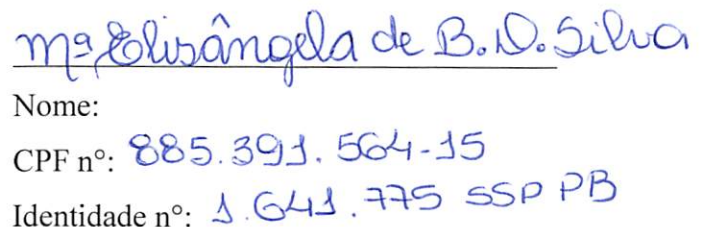 Mª Elisângela de B. D. Silva
Nome:
CPF nº: 885.391.564-15
Identidade nº: 1.641.775 SSP PB